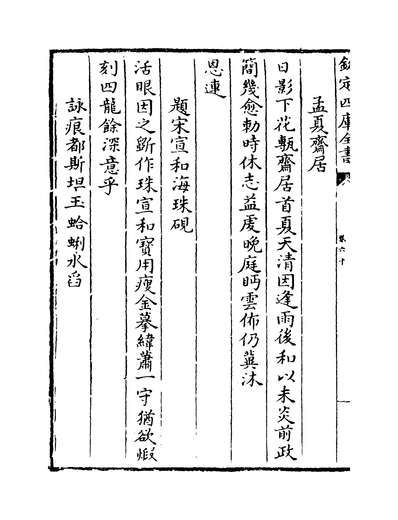 欽定四庫全書
卷六十
孟夏齋居
日影下花甎齋居首夏天清因逢雨後和以未炎前政
簡幾愈勅時休志益虔晚庭眄雲佈仍冀沐
恩連
題宋宣和海珠硯
活眼因之斵作珠宣和寶用瘦金摹緯蕭一守猶欲煅
刻四龍餘深意乎
詠痕都斯坦玉蛤蜊水舀